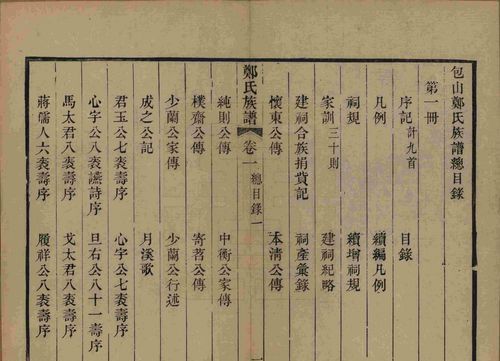 包山鄭氏族譜總目錄
第一冊
序記計九首 目錄
凡例 續編凡例
祠規 續增祠規
家訓三十則 建祠紀略
建祠合族捐貲記 祠產彙錄
懷東公傳 本清公傳
鄭氏族譜 卷一 總目錄 一
純則公傳 中衡公家傳
樸齋公傳 寄菴公傳
少蘭公家傳 少蘭公行述
成之公記 月溪歌
君玉公七袠壽序 心宇公七袠壽序
心宇公八袠讌詩序 旦右公八十一壽序
馬太君八袠壽序 戈太君八袠壽序
蔣孺人六袠壽序 履祥公八袠壽序